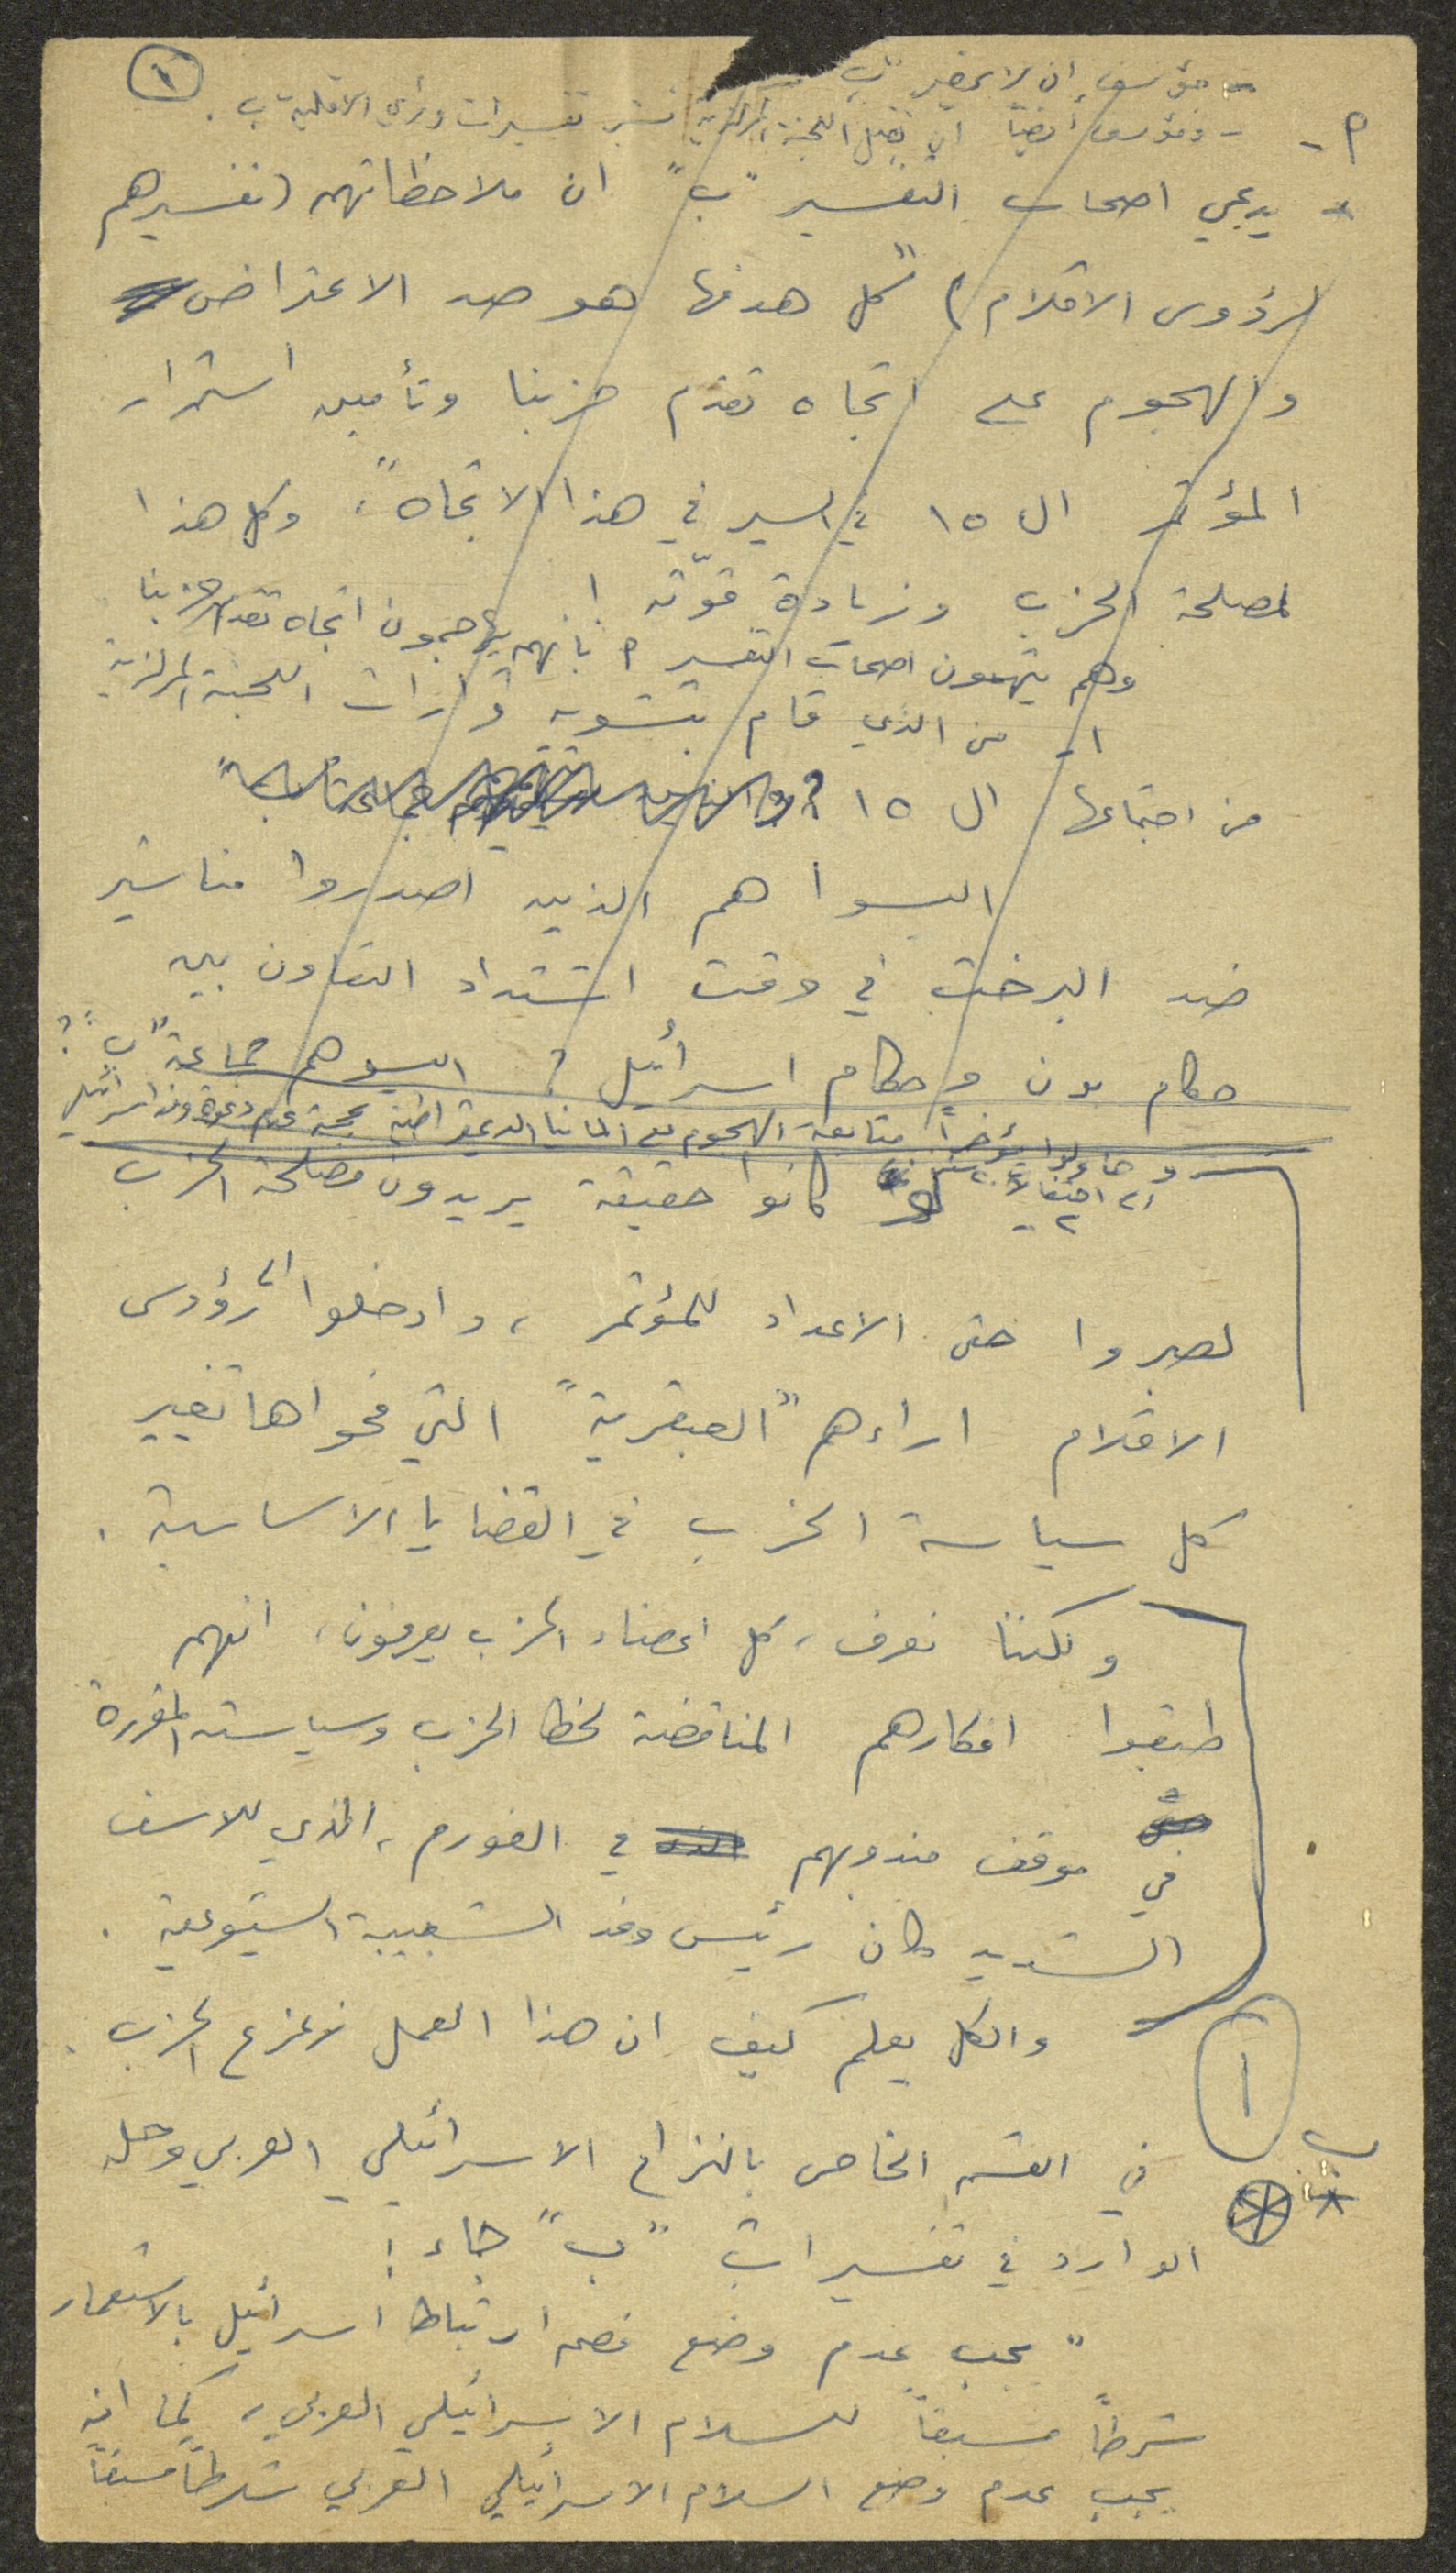 ١
- مؤسف ان لا يحضر "ب"
م - - ومؤسف أيضاً ان تقبل اللجنة المركزية نشر تفسيرات ورأي الاقلية ب .
* يدعي اصحاب التفسير "ب" ان ملاحظاتهم (تفسيرهم
لرؤوس الاقلام) "كل هدفها هو صد الاعتراض
والهجوم على اتجاه تقدم حزبنا وتأمين استمرار
المؤتمر ال ١٥ في السير في هذا الاتجاه"، وكل هذا
لمصلحة الحزب وزيادة قوّته !
وهم يتهمون اصحاب التفسير م بأنهم يهاجمون اتجاه تقدم حزبنا
١- من الذي قام بتشويه قرارات اللجنة المركزية
من اجتماعها ال ١٥ ?
اليسوا هم الذين اصدروا مناشير
ضد البرخت في وقت اشتداد التعاون بين
حكام بون وحكام اسرائيل ? اليسو هم جماعة "ب" ?
وحاولوا مؤخراً متابعة الهجوم على المانيا الديمقراطية بحجة عدم دعوة وفد اسرائيلي
الى احتفالات
كانوا حقيقة يريدون مصلحة الحزب
لصبروا حتى الاعداد للمؤتمر ، وادخلوا الى رؤوس
الاقلام اراءهم "العبقرية" التي فحواها تغيير
كل سياسة الحزب في القضايا الاساسية .
ولكننا نعرف ، كل اعضاء الحزب يعرفون ، انهم
طبقوا افكارهم المناقضة لخط الحزب وسياسته المقررة
في موقف مندوبهم في الفورم ، الذي للاسف
الشديد كان رئيس وفد الشبيبة الشيوعية .
والكل يعلم كيف ان هذا العمل زعزع الحزب .
١
ب
* في القسم الخاص بالنزاع الاسرائيلي العربي وحله
الوارد في تفسيرات "ب" جاء :
"يجب عدم وضع فصم ارتباط اسرائيل بالاستعمار
شرطاً مسبقاً للسلام الاسرائيلي العربي ، كما انه
يجب عدم وضع السلام الاسرائيلي العربي شرطاً مسبقاً